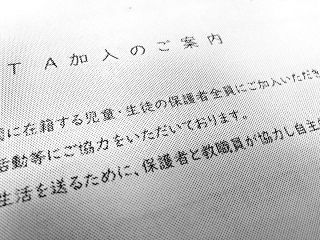 TA加入のご案内
に在籍する児童・生徒の保護者全員にご加入いただき
活動等にご協力をいただいております。
生活を送るために、保護者と教職員が協力し自主